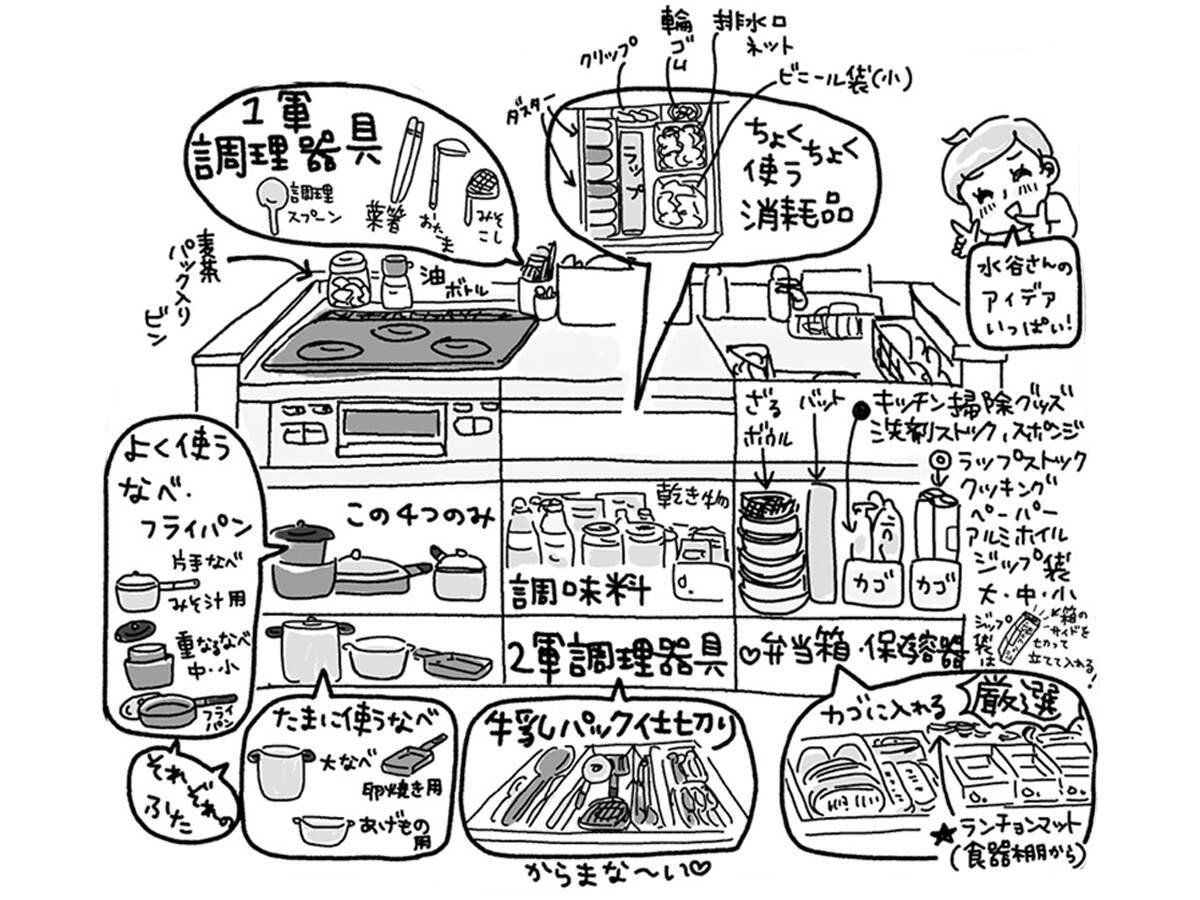 クリップ
輪
ゴ
ム
排水口
ネット
ビニール袋(小)
ダスター
ラップ
ちょくちょく
使う
消耗品
1軍
調理器具
調理
スプーン
菜箸
おたま
みそ
こし
水谷さんの
アイデア
いっぱい!
麦茶
パック入り
ビン
油
ボトル
よく使う
なべ・
フライパン
片手なべ
みそ汁用
重なるなべ
中・小
フライ
パン
それぞれの
ふた
この4つのみ
乾き物
調味料
2軍調理器具
ざる
ボウル
バット
●キッチン掃除グッズ
洗剤ストック、スポンジ
◎ラップストック
クッキング
ペーパー
アルミホイル
ジップ袋
大・中・小
カゴ
カゴ
ジップ
袋
は
箱の
サイドを
切って
立てて入れる!
♡弁当箱・保存容器
たまに使うなべ
大なべ
卵焼き用
あげもの
用
牛乳パック仕切り
からまな〜い♡
カゴに入れる
厳選
★ランチョンマット
(食器棚から)